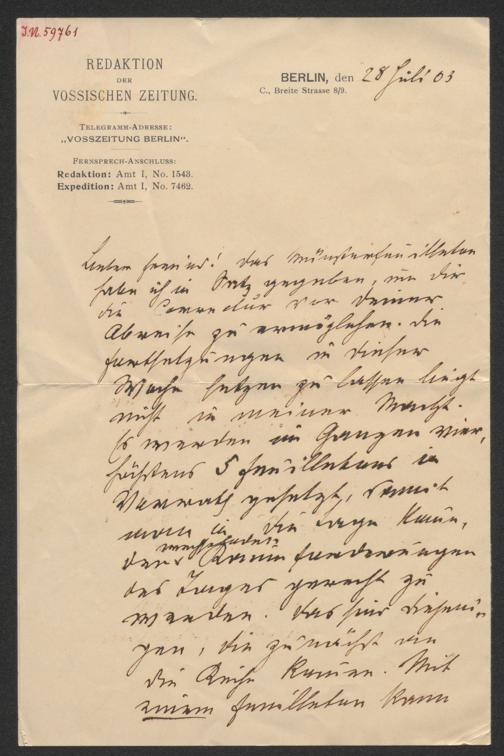 I.N. 59761
REDAKTION
DER
VOSSISCHEN ZEITUNG.
TELEGRAMM-ADRESSE:
„VOSSZEITUNG BERLIN".
FERNSPRECH-ANSCHLUSS:
Redaktion: Amt I, No. 1543.
Expedition: Amt I, No. 7462.
BERLIN, den 28 Juli 03
C., Breite Strasse 8/9.
Lieber Freund! Das Münsterfeuilleton
habe ich in Satz gegeben, um Dir
die Correctur vor Deiner
Abreise zu ermöglichen. Die
Fortsetzungen in dieser
Woche setzen zu lassen liegt
nicht in meiner Macht.
Es werden im Ganzen vier,
höchstens 5 Feuilletons in
Vorrath gesetzt, damit
man in die Lage kaum,
den wechselnden Raumforderungen
des Tages gerecht zu
werden. Das sind diejeni-
gen, die zunächst an
die Reihe kommen. Mit
einem Feuilleton kann